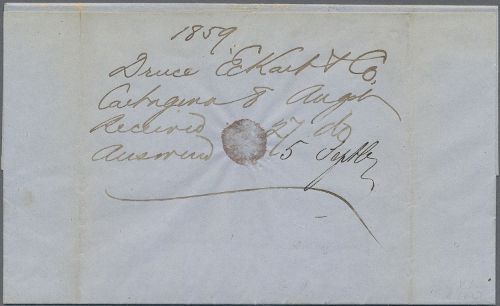 1859.
Druce Eckart & Co.
Cartagena 8 Augt
Received 27 do
Answered 5 Septbr